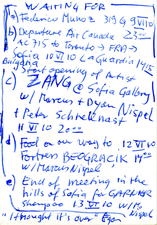 WAITING FOR
a) Federico Munoz 319 G 9 VI 10
b) Departure Air Canada 23
AC 715 to Toronto → FRA →
Sofia 10 VI 10 LaGuardia
Bulgaria
c) opening of Artist
ZANG @ Sofia Gallery
w/ Marcus + Dyan Nispel
+ Peter
11 VI 10 20 00
d) Food on our way to 12 VI 10
Fortress
w/ Marcus Nispel
e) End of meeting in the
hills of Sofia for GARNIER
shampoo 13 VI 10 w/
"I thought it's over" Egon Nispel